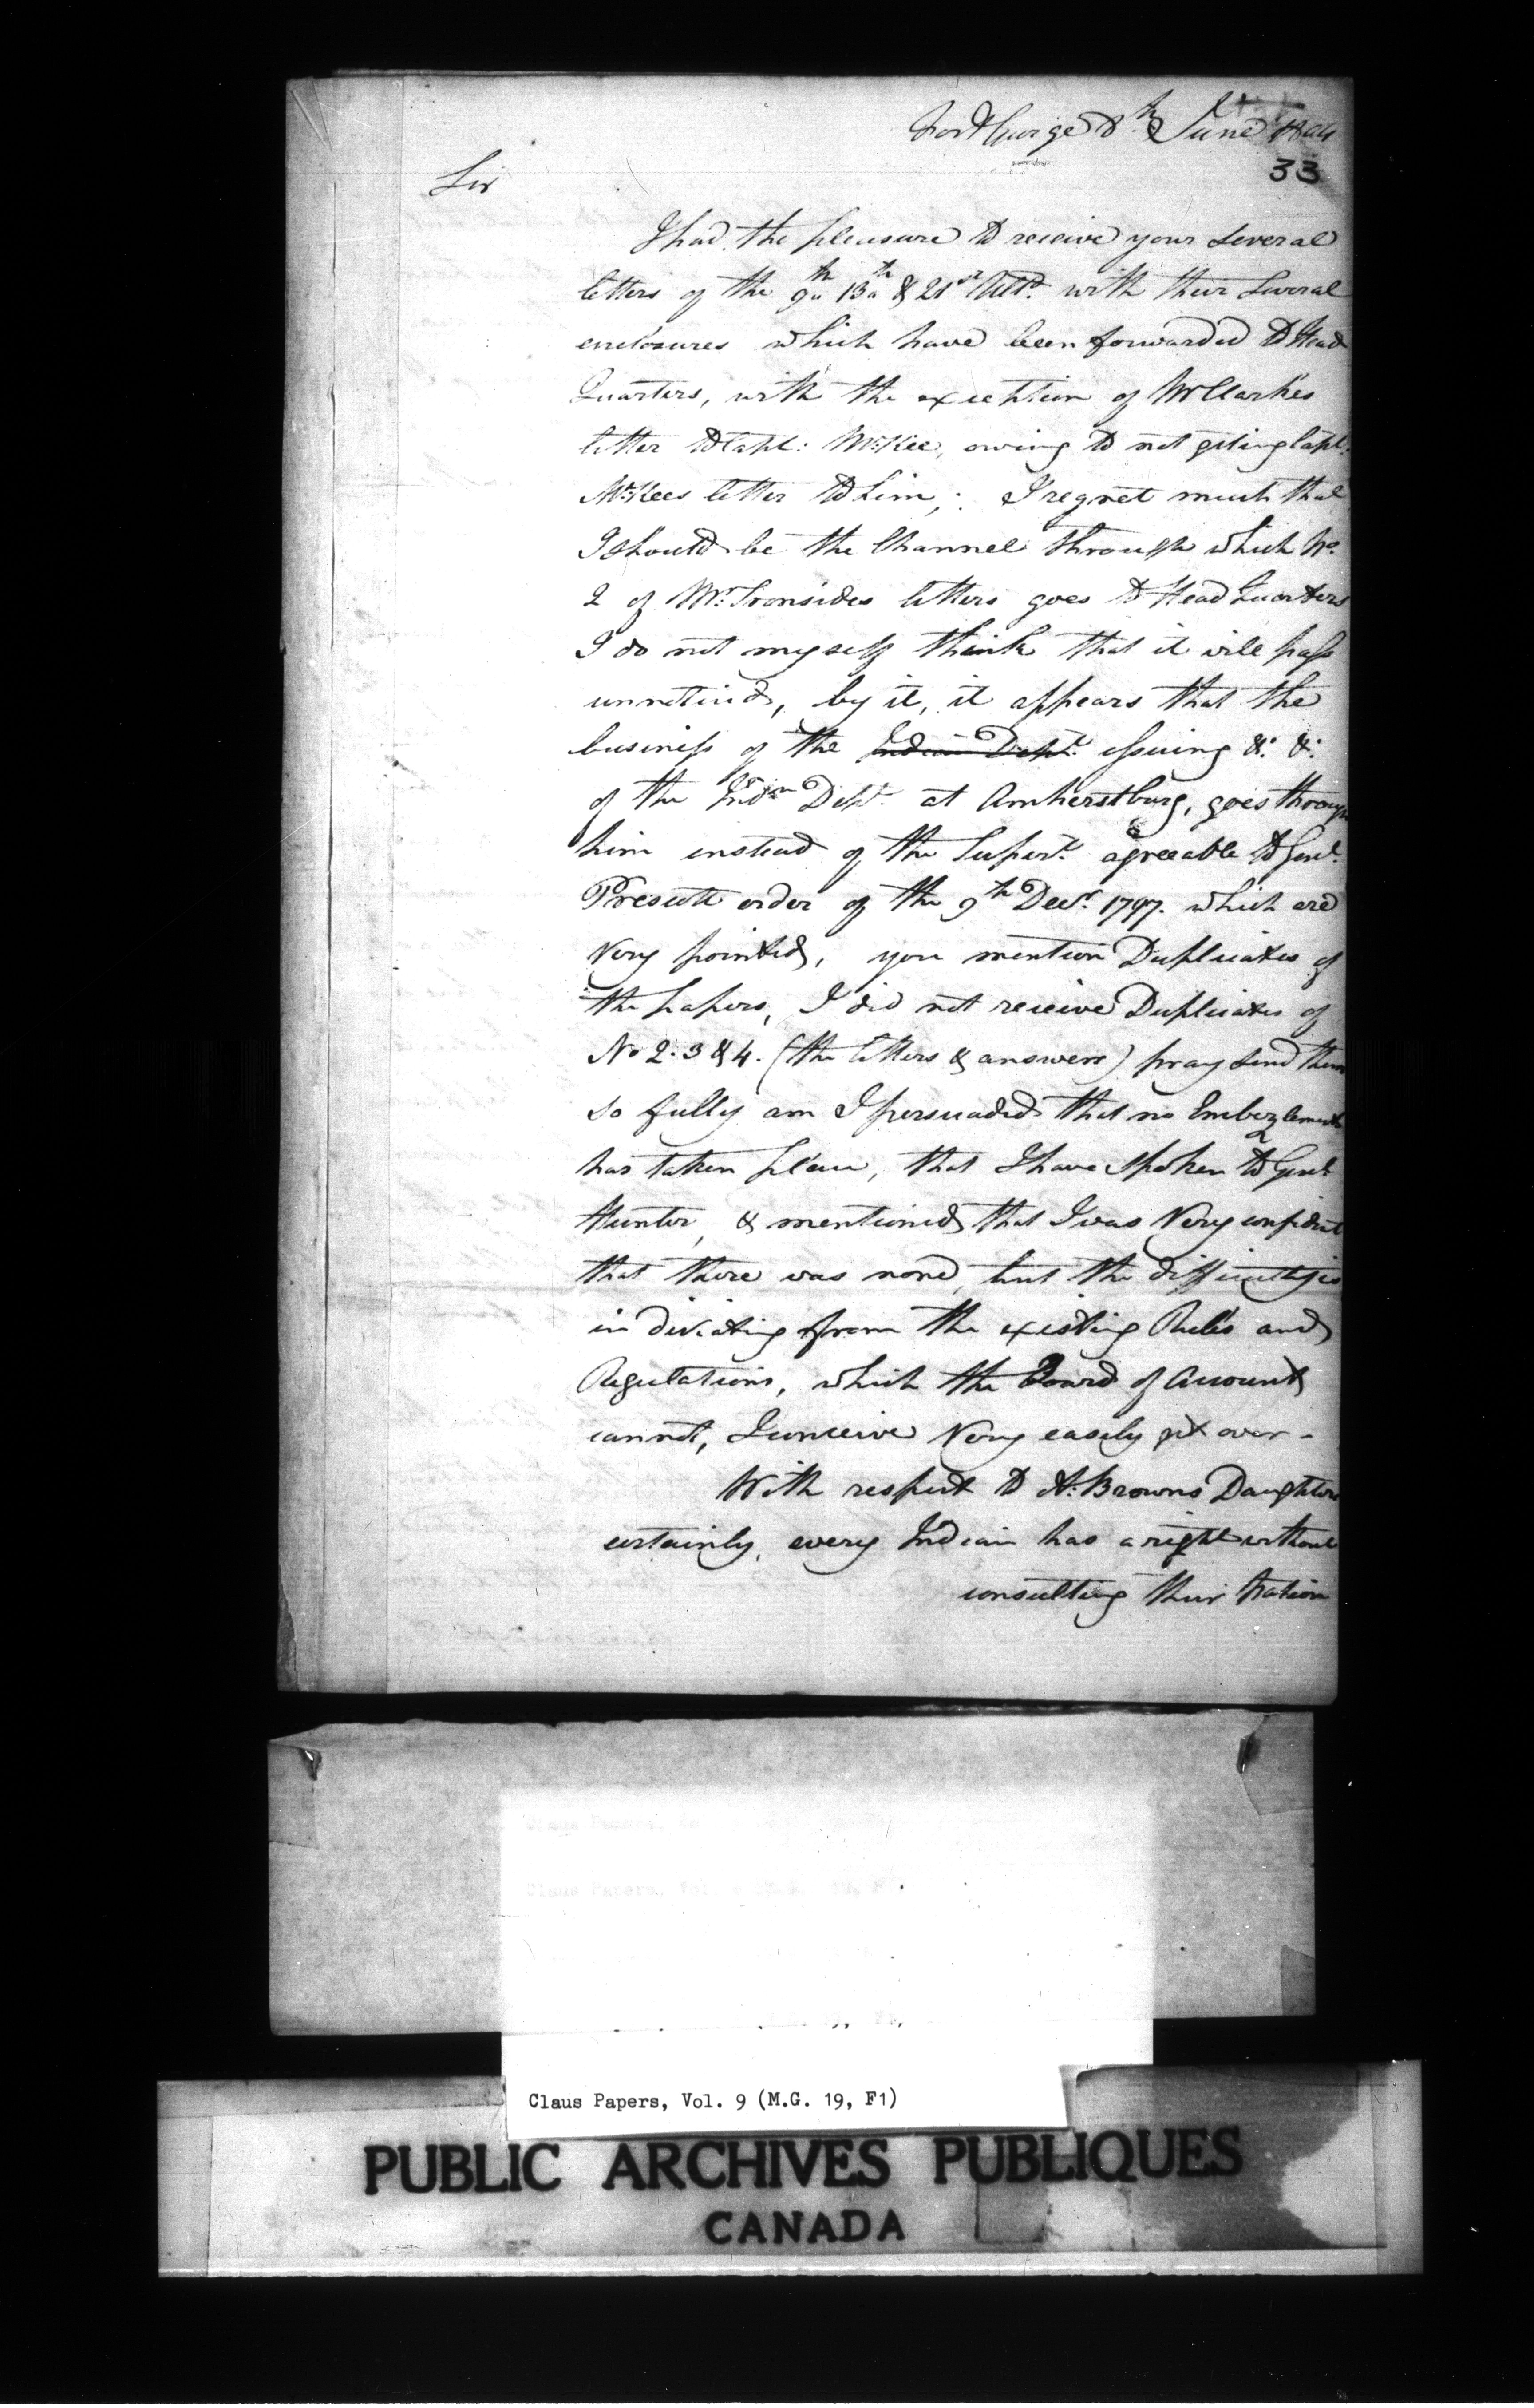 Fort George 8th June 1804
33
Sir
I had the pleasure to receive your several
letters of the 9th 13th & 21st Ulto. with their several
enclosures which have been forwarded to Head
Quarters, with the exception of Mr Clarkes
letter to Capt: McKee, owing to not geting Capt.
McKees letter to him; I regret much that
I should be the Channel through which No.
2 of Mr. Ironsides letters goes to Head Quarters
I do not myself think that it will pass
unnoticed, by it, it appears that the
business of the Indian Dept. issuing &c. &c.
of the Indn. Dept. at Amherstburg, goes through
him instead of the Supert. agreeable to Genl.
Prescott order of the 9th Decr. 1797. which are
Very pointed, you mention Duplicates of
the papers, I did not receive Duplicates of
No 2. 3 & 4. (the letters & answers) pray send them
so fully am I persuaded that no Embezlement
has taken place, that I have spoken to Genl
Hunter, & mentioned that I was Very confident
that there was none, but the difficulty is
in diviating from the existing Rules and
Regulations, which the Board of Accounts
cannot, I conceive Very easily get over -
With respect to A: Browns Daughters
certainly, every Indian has a right without
consulting their Nation
Claus Papers, Vol. 9 (M.G. 19, F1)
PUBLIC ARCHIVES PUBLIQUES
CANADA